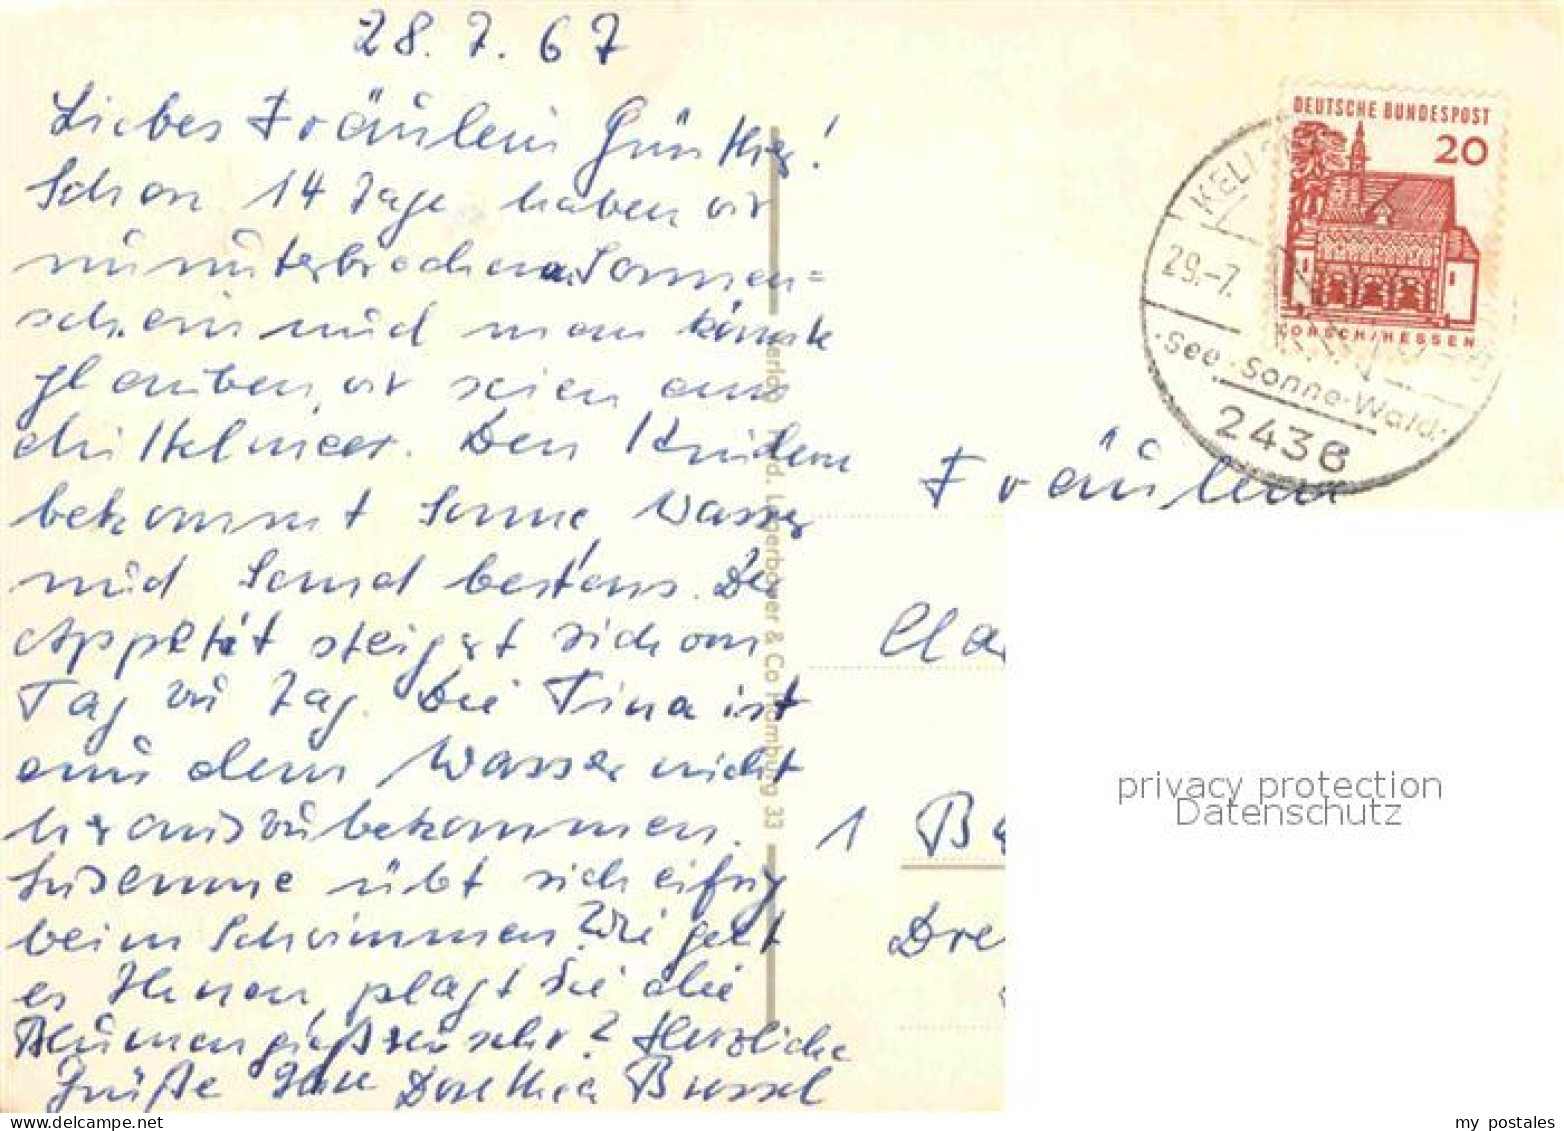 28.7.67
Liebes Fräulein Günther!
Schon 14 Tage haben wir
ununterbrochenen Sonnen=
schein und man könnte
glauben, wir seien am
Mittelmeer. Den Kindern
bekommt Sonne, Wasser
und Sand bestens. Der
Appetit steigert sich von
Tag zu Tag. Die Tina ist
aus dem Wasser nicht
herauszubekommen.
Susanne übt sich eifrig
beim Schwimmen. Wie geht
es Ihnen, plagt Sie die
Blumengießerei sehr? Herzliche
Grüße Ihre Dorothea Bressel
Ferd. Lagerbauer & Co Hamburg 33
DEUTSCHE BUNDESPOST
20
LORSCH/HESSEN
KELL
29.-7.
See·Sonne·Wald
2436
Fräulein
Cla
1 B
Dre
privacy protection
Datenschutz
my postales